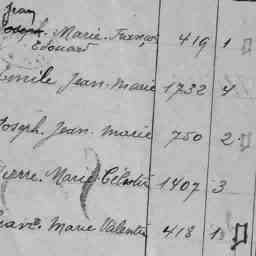 Jean
Joseph. Marie. François 419 1
Edouard
Emile Jean-Marie 1732 4
Joseph. Jean. Marie 750 2
Pierre. Marie. Célestin 1407 3
Marie Valentin 418 1